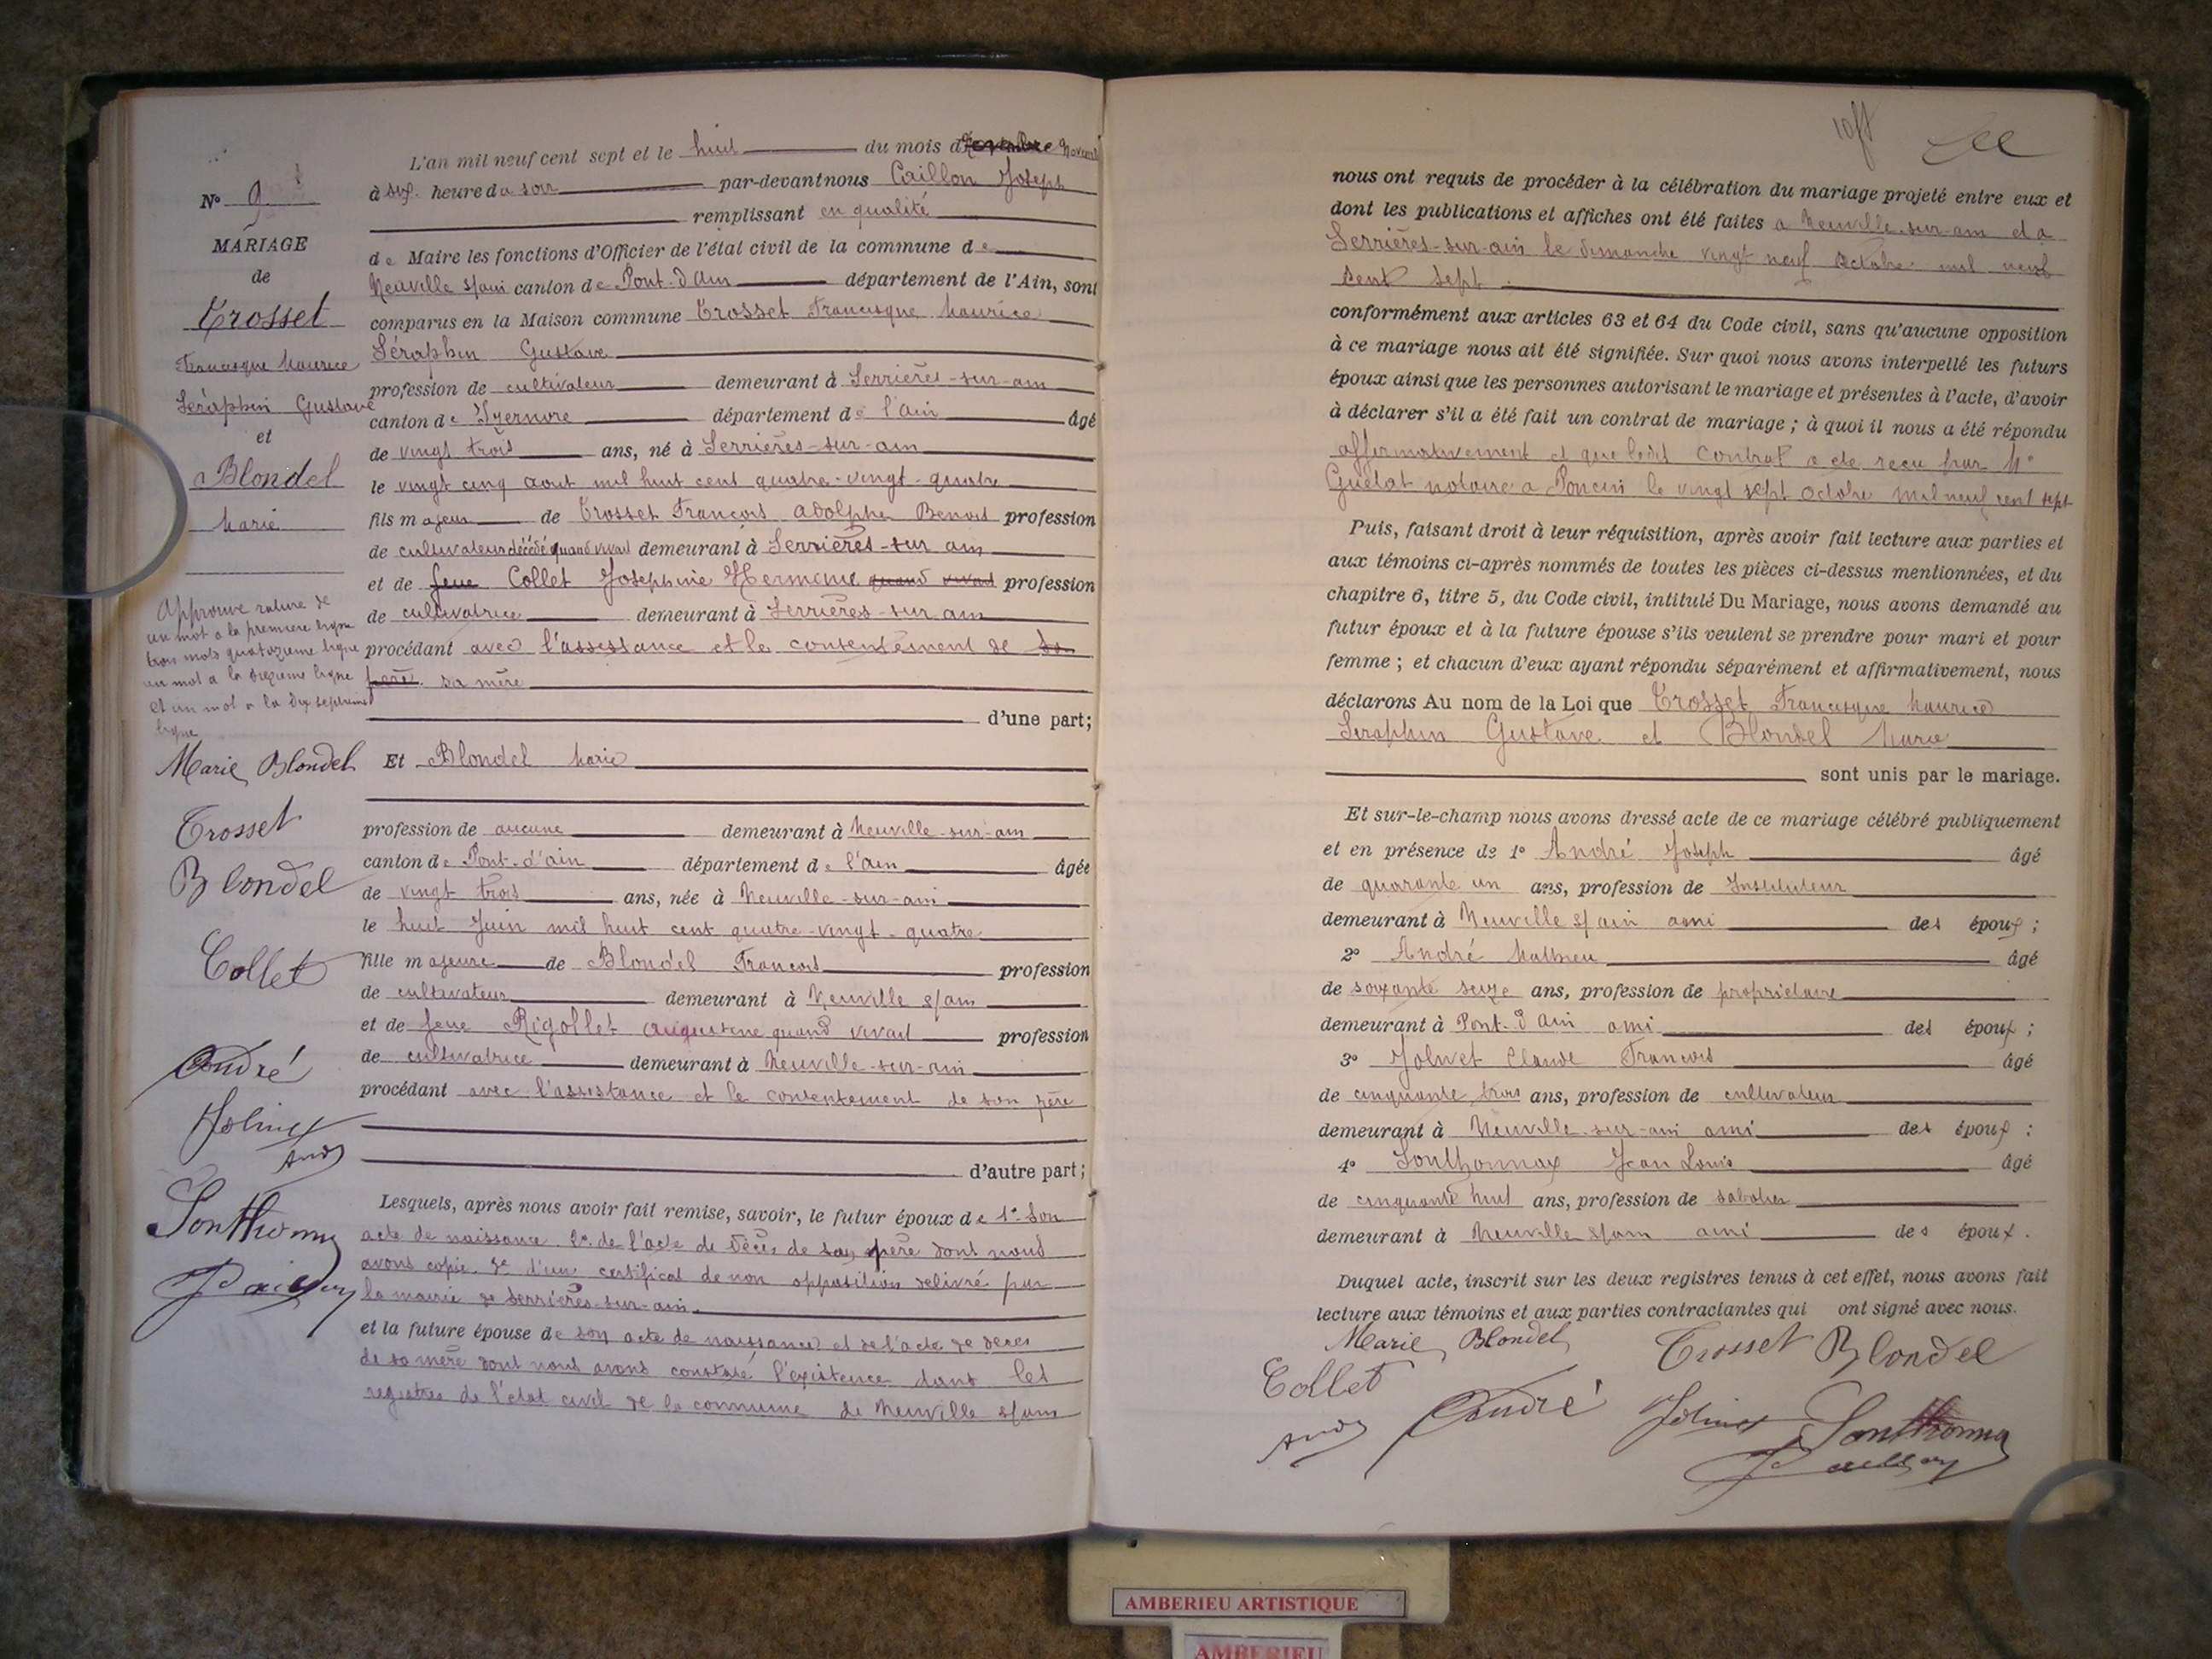 N° 9
MARIAGE
de
Trosset
Francisque Maurice
Séraphin Gustave
et
Blondel
Marie
Approuvé rature de
un mot a la premiere ligne
trois mots quatorzieme ligne
un mot a la seizieme ligne
et un mot a la dix septieme
ligne
Marie Blondel
Trosset
Blondel
Collet
André
Jolivet
And
Sonthonna
Caillon
L'an mil neuf cent sept et le huit du mois de Novemb
à six heure du soir par-devant nous Caillon Joseph
remplissant en qualité
de Maire les fonctions d'Officier de l'état civil de la commune de
Neuville s/ain canton de Pont-d'Ain département de l'Ain, sont
comparus en la Maison commune Trosset Francisque Maurice
Séraphin Gustave
profession de cultivateur demeurant à Serrières-sur-ain
canton de Izernore département de l'ain âgé
de vingt trois ans, né à Serrières-sur-ain
le vingt cinq aout mil huit cent quatre-vingt-quatre
fils majeur de Trosset François Adolphe Benoit profession
de cultivateur décédé quand vivait demeurant à Serrières-sur ain
et de feue Collet Josephine Hermence quand vivait profession
de cultivatrice demeurant à Serrières-sur ain
procédant avec l'assistance et le consentement de son
père sa mère
d'une part;
Et Blondel Marie
profession de aucune demeurant à Neuville-sur-ain
canton de Pont-d'ain département de l'ain âgée
de vingt trois ans, née à Neuville-sur-ain
le huit Juin mil huit cent quatre-vingt-quatre
fille majeure de Blondel François profession
de cultivateur demeurant à Neuville s/ain
et de feue Rigollet Augustine quand vivait profession
de cultivatrice demeurant à Neuville-sur-ain
procédant avec l'assistance et le consentement de son père
d'autre part;
Lesquels, après nous avoir fait remise, savoir, le futur époux de 1° Son
acte de naissance 2° de l'acte de décès de son père dont nous
avons copie 3° d'un certificat de non opposition delivré par
la mairie de Serrières-sur-ain.
et la future épouse de son acte de naissance et de l'acte de décès
de sa mère dont nous avons constaté l'existence dans les
registres de l'état civil de la commune de Neuville s/ain
nous ont requis de procéder à la célébration du mariage projeté entre eux et
dont les publications et affiches ont été faites a Neuville-sur-ain et a
Serrières-sur-ain le dimanche vingt neuf Octobre mil neuf
cent sept
conformément aux articles 63 et 64 du Code civil, sans qu'aucune opposition
à ce mariage nous ait été signifiée. Sur quoi nous avons interpellé les futurs
époux ainsi que les personnes autorisant le mariage et présentes à l'acte, d'avoir
à déclarer s'il a été fait un contrat de mariage ; à quoi il nous a été répondu
affirmativement et que ledit contrat a été reçu par Me
Guélat notaire a Poncin le vingt sept octobre mil neuf cent sept
Puis, faisant droit à leur réquisition, après avoir fait lecture aux parties et
aux témoins ci-après nommés de toutes les pièces ci-dessus mentionnées, et du
chapitre 6, titre 5, du Code civil, intitulé Du Mariage, nous avons demandé au
futur époux et à la future épouse s'ils veulent se prendre pour mari et pour
femme ; et chacun d'eux ayant répondu séparément et affirmativement, nous
déclarons Au nom de la Loi que Trosset Francisque Maurice
Seraphin Gustave et Blondel Marie
sont unis par le mariage.
Et sur-le-champ nous avons dressé acte de ce mariage célébré publiquement
et en présence de 1° André Joseph âgé
de quarante un ans, profession de Instituteur
demeurant à Neuville s/ ain ami des époux ;
2° André Mathieu âgé
de soixante seize ans, profession de propriétaire
demeurant à Pont-d'Ain ami des époux ;
3° Jolivet Claude François âgé
de cinquante trois ans, profession de cultivateur
demeurant à Neuville-sur-ain ami des époux ;
4° Sonthonnax Jean Louis âgé
de cinquante huit ans, profession de sabotier
demeurant à Neuville s/ain ami des époux.
Duquel acte, inscrit sur les deux registres tenus à cet effet, nous avons fait
lecture aux témoins et aux parties contractantes qui ont signé avec nous.
Marie Blondel Trosset Blondel
Collet
And André Jolivet Sonthonna
Caillon
AMBERIEU ARTISTIQUE
AMBERIEU